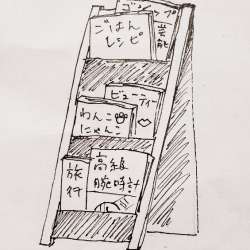 ゴシップ
ごはん
レシピ
芸能
ビューティー
わんこ
にゃんこ
旅行
高級
腕時計